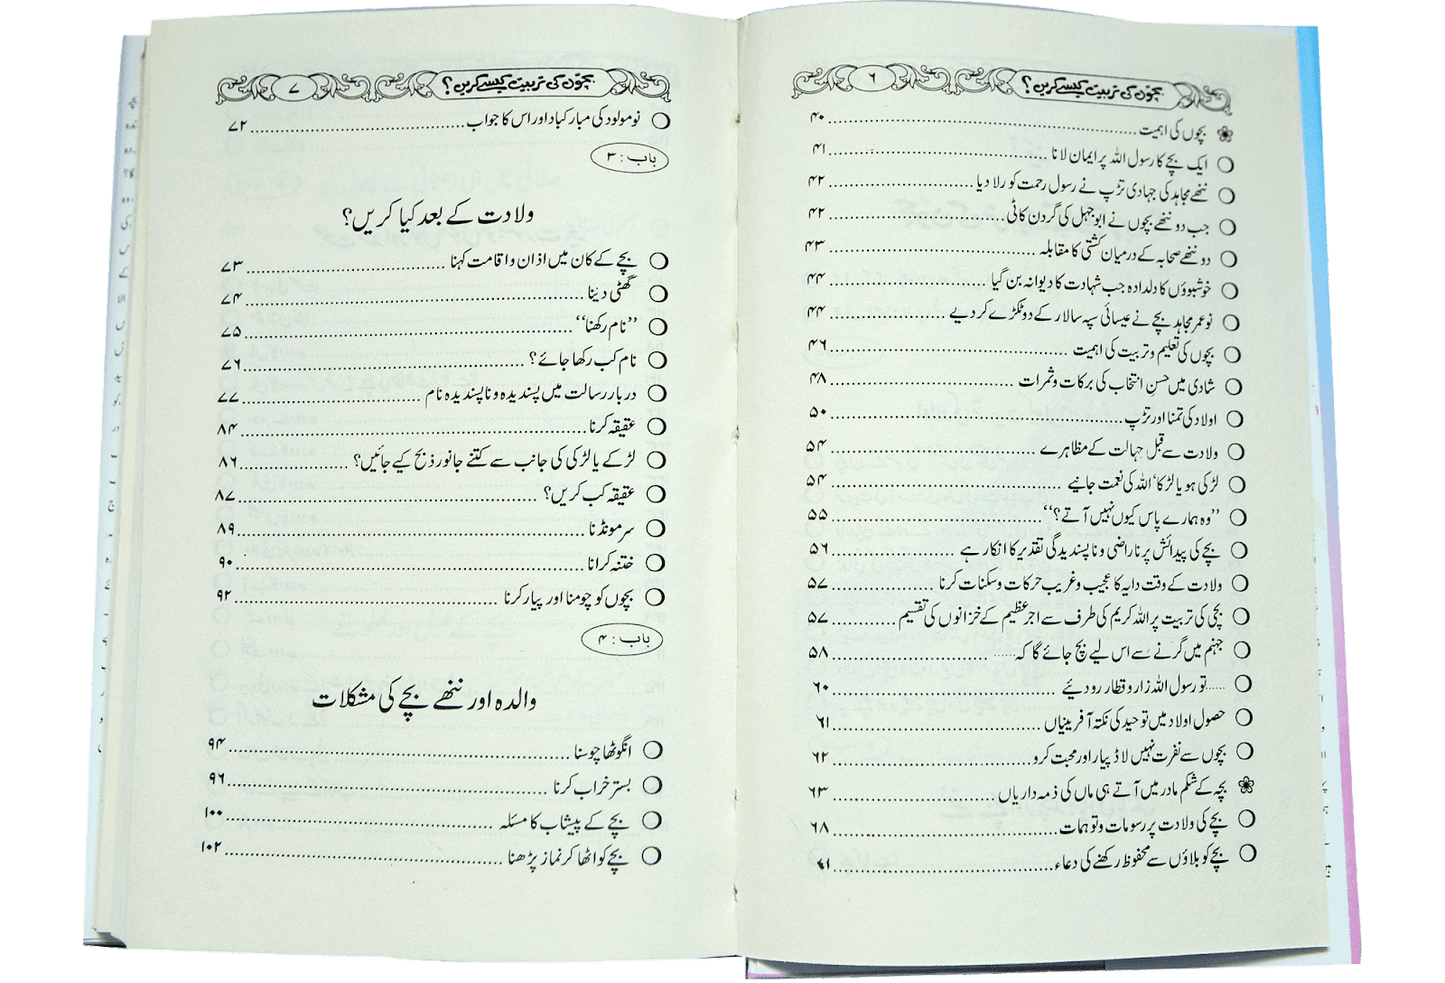 بچوں کی تربیت کیسے کریں؟ ۶
بچوں کی اہمیت ۴۰
ایک بچے کا رسول اللہ پر ایمان لانا ۴۱
ننھے مجاہد کی جہادی تڑپ نے رسول رحمت کو رلا دیا ۴۲
جب دو ننھے بچوں نے ابوجہل کی گردن کاٹی ۴۲
دو ننھے صحابہ کے درمیان کشتی کا مقابلہ ۴۳
خوشبوؤں کا دلدادہ جب شہادت کا دیوانہ بن گیا ۴۴
نوعمر مجاہد بچے نے عیسائی سپہ سالار کے دو ٹکڑے کر دیے ۴۴
بچوں کی تعلیم و تربیت کی اہمیت ۴۶
شادی میں حسنِ انتخاب کی برکات و ثمرات ۴۸
اولاد کی تمنا اور تڑپ ۵۰
ولادت سے قبل جہالت کے مظاہرے ۵۴
لڑکی ہو یا لڑکا' اللہ کی نعمت جانیے ۵۴
"وہ ہمارے پاس کیوں نہیں آتے؟" ۵۵
بچے کی پیدائش پر ناراضی و ناپسندیدگی تقدیر کا انکار ہے ۵۶
ولادت کے وقت دایہ کا عجیب و غریب حرکات و سکنات کرنا ۵۷
بچی کی تربیت پر اللہ کریم کی طرف سے اجر عظیم کے خزانوں کی تقسیم ۵۷
جہنم میں گرنے سے اس لیے بچ جائے گا کہ...... ۵۸
......تو رسول اللہ زار و قطار رو دیئے ۶۰
حصول اولاد میں توحید کی نکتہ آفرینیاں ۶۱
بچوں سے نفرت نہیں لاڈ پیار اور محبت کرو ۶۲
بچہ کے شکم مادر میں آتے ہی ماں کی ذمہ داریاں ۶۳
بچے کی ولادت پر رسومات و توہمات ۶۸
بچے کو بلاؤں سے محفوظ رکھنے کی دعاء
بچوں کی تربیت کیسے کریں؟ ۷
نومولود کی مبارکباد اور اس کا جواب ۷۲
باب : ۳
ولادت کے بعد کیا کریں؟
بچے کے کان میں اذان و اقامت کہنا ۷۳
گھٹی دینا ۷۴
"نام رکھنا" ۷۵
نام کب رکھا جائے؟ ۷۶
دربار رسالت میں پسندیدہ و ناپسندیدہ نام ۷۷
عقیقہ کرنا ۸۴
لڑکے یا لڑکی کی جانب سے کتنے جانور ذبح کیے جائیں؟ ۸۶
عقیقہ کب کریں؟ ۸۷
سر مونڈنا ۸۹
ختنہ کرانا ۹۰
بچوں کو چومنا اور پیار کرنا ۹۲
باب : ۴
والدہ اور ننھے بچے کی مشکلات
انگوٹھا چوسنا ۹۴
بستر خراب کرنا ۹۶
بچے کے پیشاب کا مسئلہ ۱۰۰
بچے کو اٹھا کر نماز پڑھنا ۱۰۲